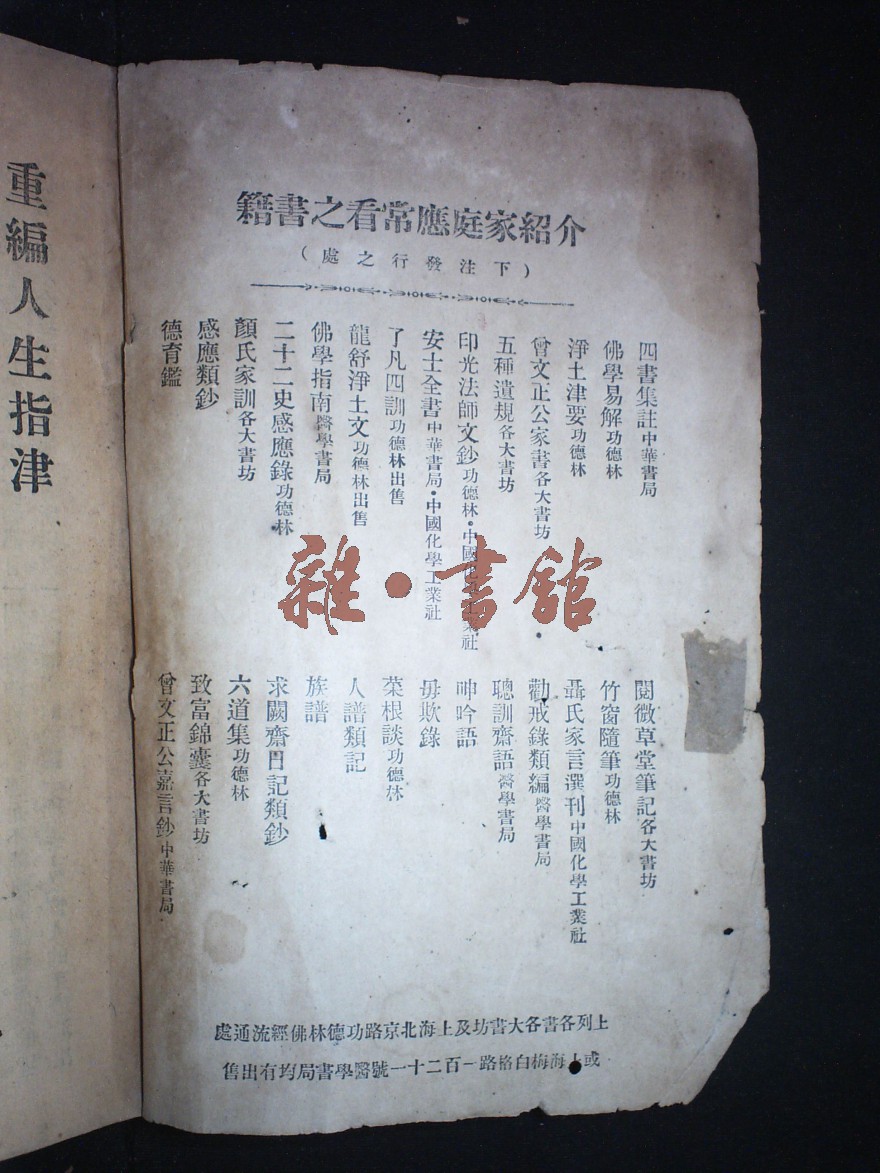 介紹家庭應常看之書籍
（下注發行之處）
四書集註中華書局
佛學易解功德林
淨土津要功德林
曾文正公家書各大書坊
五種遺規各大書坊
印光法師文鈔功德林·中國化學工業社
安士全書中華書局·中國化學工業社
了凡四訓功德林出售
龍舒淨土文功德林出售
佛學指南醫學書局
二十二史感應錄功德林
顏氏家訓各大書坊
感應類鈔
德育鑑
閱微草堂筆記各大書坊
竹窗隨筆功德林
聶氏家言選刊中國化學工業社
勸戒錄類編醫學書局
聰訓齋語醫學書局
呻吟語
毋欺錄
菜根談功德林
人譜類記
族譜
求闕齋日記類鈔
六道集功德林
致富錦囊各大書坊
曾文正公嘉言鈔中華書局
上列各書各大書坊及上海北京路功德林佛經流通處
或上海梅白格路一百二十一號醫學書局均有出售
重編人生指津
雜·書館